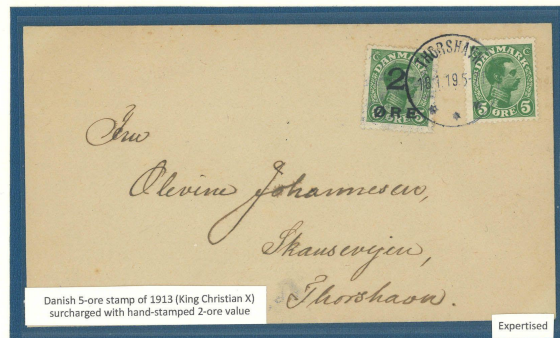 2
ØRE
DANMARK
5 ØRE 5
THORSHAVN
Fru
Olevine Johannesen,
Skansevejen,
Thorshavn.
Danish 5-ore stamp of 1913 (King Christian X)
surcharged with hand-stamped 2-ore value
Expertised